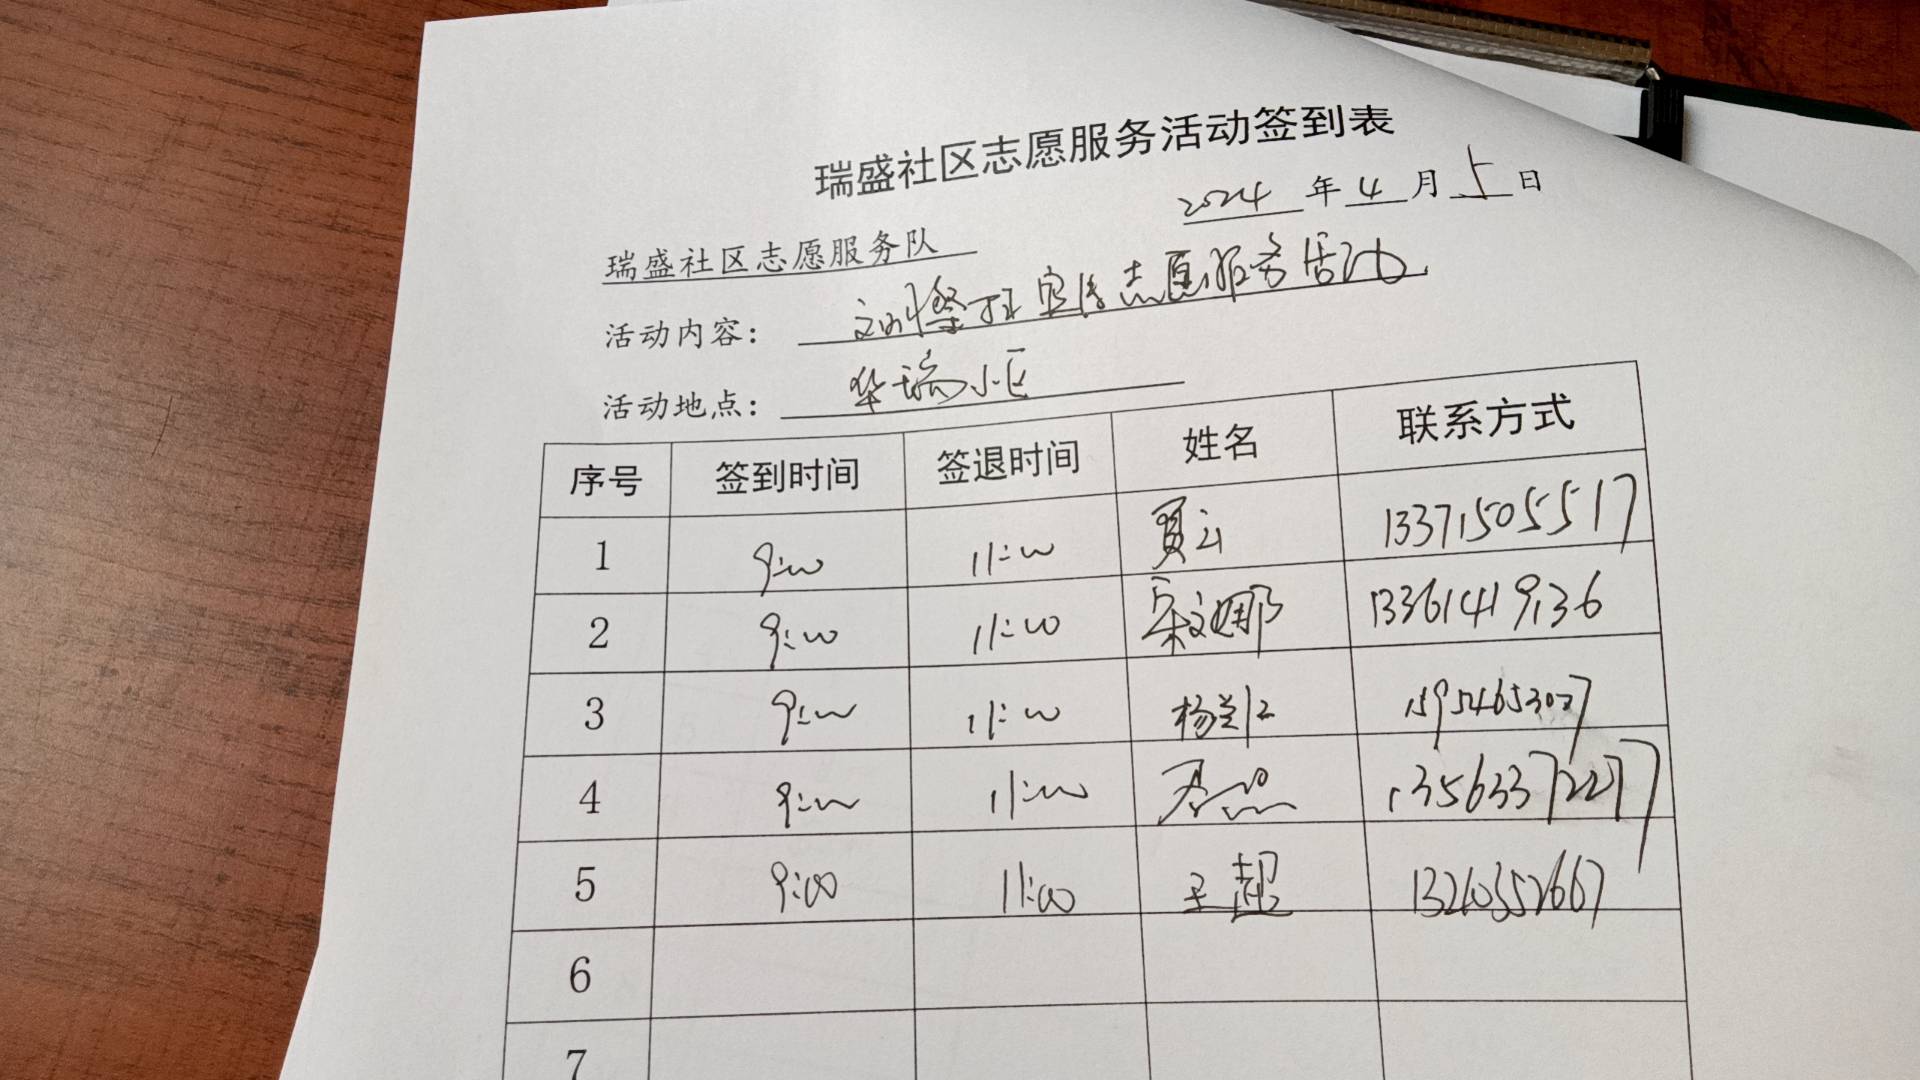 瑞盛社区志愿服务活动签到表
2024年4月5日
瑞盛社区志愿服务队
活动内容：文明祭扫宣传志愿服务活动
活动地点：华瑞小区
序号 签到时间 签退时间 姓名 联系方式
1 9:00 11:00 贾云 13371505517
2 9:00 11:00 宋文娜 13361419136
3 9:00 11:00 杨兰 15954653027
4 9:00 11:00 13563372277
5 9:00 11:00 王超 13210352667
6
7